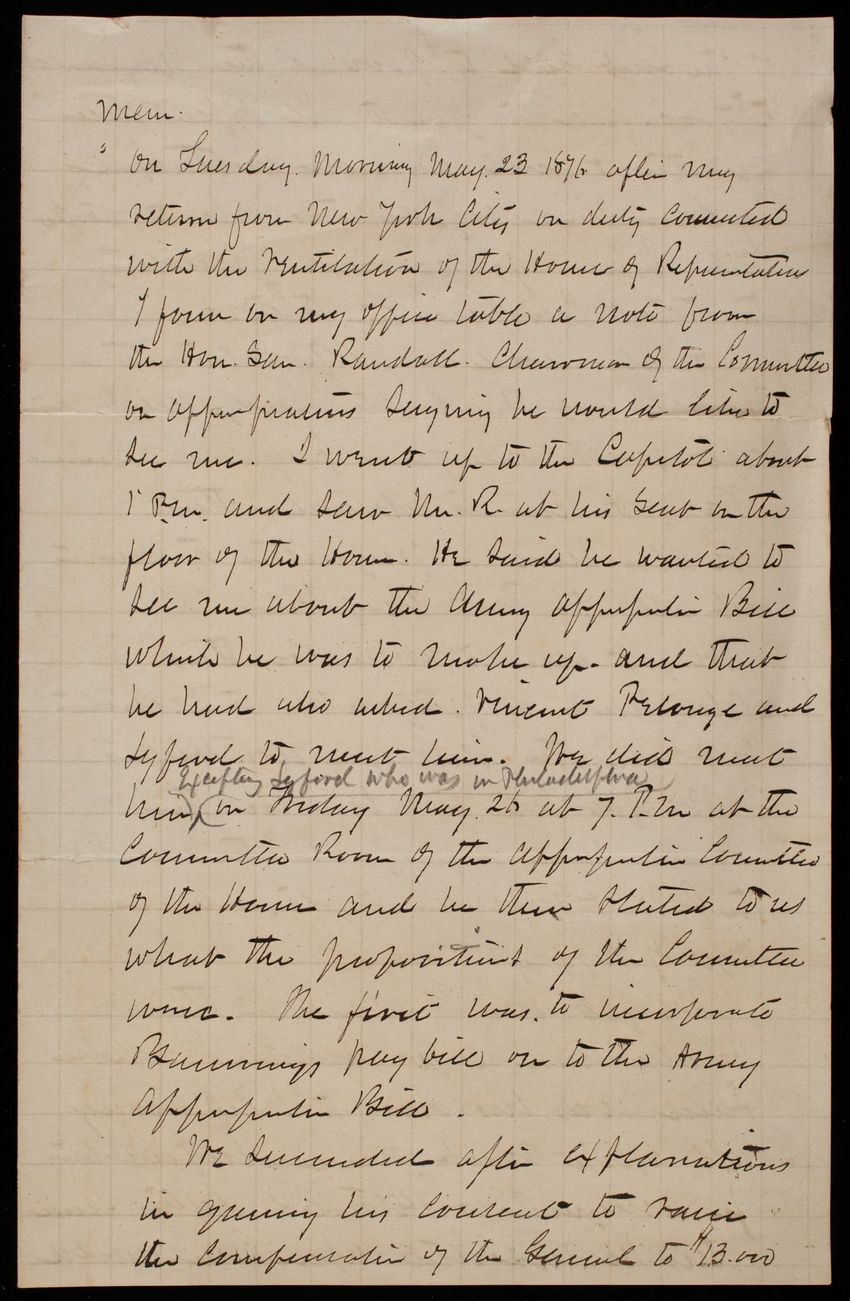 Mem.
" On Tuesday. Morning May. 23 1876 after my
return from New York City on duty connected
with the Ventilation of the House of Representatives
I foun on my office table a note from
the Hon. Sam. Randall. Chairman of the Committee
on appropriations saying he would like to
see me. I went up to the Capitol about
1 P.m. and saw Mr. R. at his Seat on the
floor of the House. He said he wanted to
see me about the Army appropriation Bill
which he was to make up. and that
he had also asked. Vincent and
Lyford to meet him. We did meet
Excepting Lyford who was in Philadelphia
him, on Friday May. 26 at 7. P.M at the
Committee Room of the appropriation Committee
of the House and he then stated to us
what the propositions of the Committee
were. The first was. to incorporate
Bannings pay bill on to the Army
Appropriation Bill.
We succeeded after explanations
in gaining his consent to raise
the compensation of the General to $13.000